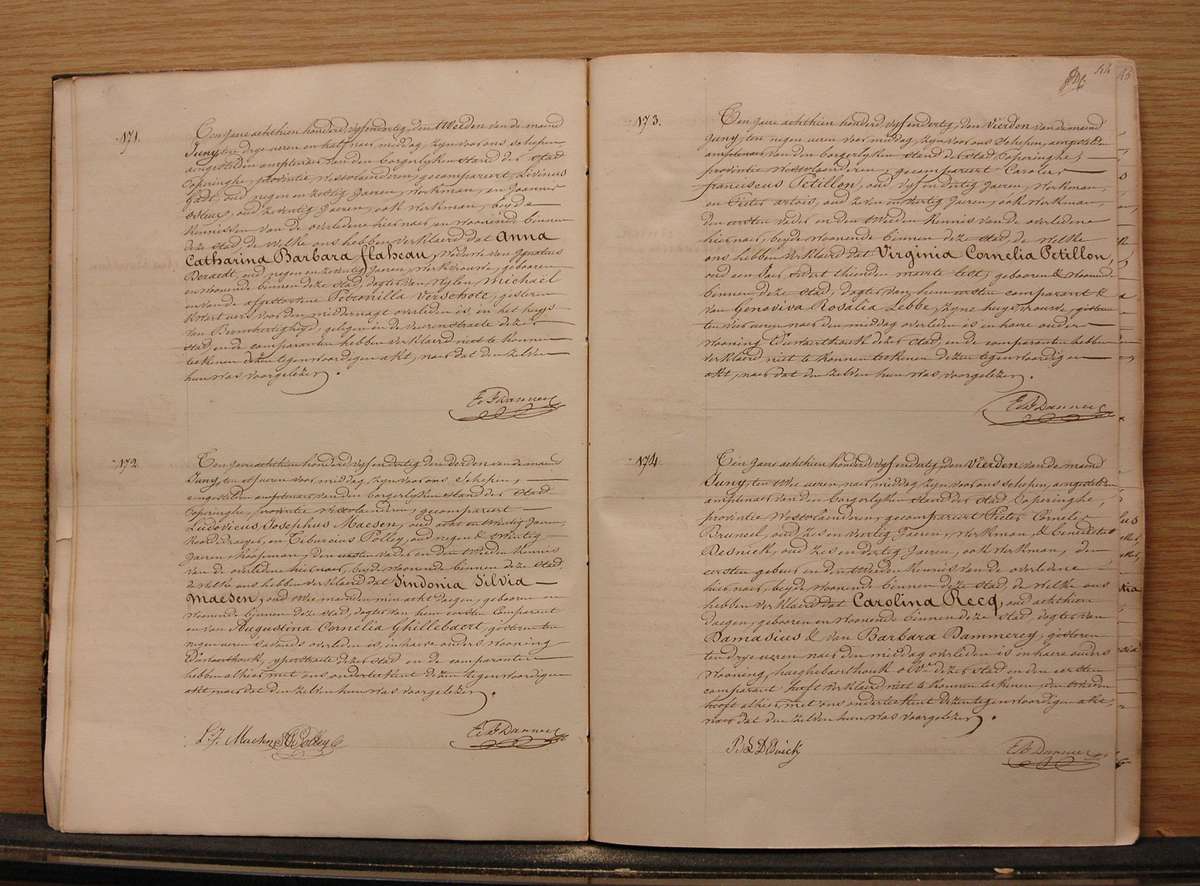 171.
Ten jare achthien honderd vyf en dertig, den tweeden van de maand
Juny, ten drye ueren en half naer middag, zyn voor ons schepen
aengestelden amptenaer van den borgerlyken stand der Stad
Poperinghe, provintie Westvlaenderen, gecompareert Livinus
oud negen en zestig Jaeren, werkman, en Joannes
oud zeventig Jaeren, ook werkman, beyde
Kennissen van de overledene hiernaer, en woonende binnen
deze stad, de welke ons hebben verklaerd dat Anna
Catharina Barbara flabeau, weduwe van Ignatius
Deraedt, oud negen en zeventig Jaeren, werkvrouw, gebooren
en woonende binnen deze stad, dogter van wylen Michael
en van de afgestorvene Petronilla Verschote, gisteren
ten een uer voor den middernagt overleden is in het huys
van gelegen in de veurnstraete dezer
stad, en de comparanten hebben verklaerd niet te konnen
teekenen dezen tegenwoordigen akt, naer dat den zelven
hun was voorgelezen.
172.
Ten jare achthien honderd vyf en dertig, den derden van de maand
Juny, ten elf ueren voor middag, zyn voor ons Schepen,
aengestelden amptenaer van den borgerlyken stand der Stad
Poperinghe, provintie Westvlaenderen, gecompareert
Ludovicus Josephus Maesen, oud acht en twintig Jaeren,
en Tiburcius Polley, oud negen & twintig
Jaeren, Koopman, den eersten vader en den tweeden Kennis
van de overledene hiernaer, beyde woonende binnen deze stad,
de welke ons hebben verklaerd dat Sindonia Silvia
Maesen, oud twee maenden min acht daegen, gebooren en
woonende binnen deze stad, dogter van hem eersten Comparant
en van Augustina Cornelia Ghillebaert, gisteren ten
negen ueren 's avonds overleden is in haere ouders wooning
ypestraete dezer stad en de comparanten
hebben alhier met ons onderteekent dezen tegenwoordigen
akt naer dat den zelven hun was voorgelezen.
L. J. Maesen Polley
173.
Ten jare achthien honderd vyf en dertig, den Vierden van de maand
Juny, ten negen ueren voor middag, zyn voor ons schepen, aengestelden
amptenaer van den borgerlyken stand der stad Poperinghe,
provintie Westvlaenderen, gecompareert Carolus
franciscus Petillon, oud vyf en dertig Jaeren, werkman,
en Pieter artois, oud zeven en veertig Jaeren, ook werkman,
den eersten vader en den tweeden Kennis van de overledene
hiernaer, beyde woonende binnen deze stad, de welke
ons hebben verklaerd dat Virginia Cornelia Petillon,
oud een Jaer sedert thienden maerte lest, gebooren & woonende
binnen deze stad, dogter van hem eersten comparant &
van Genoviva Rosalia Lebbe, zyne huysvrouwe, gisteren
ten vier ueren naer den middag overleden is in haere ouders
wooning dezer stad, en de comparanten hebben
verklaerd niet te konnen teekenen dezen tegenwoordigen
akt, naer dat den zelven hun was voorgelezen.
174.
Ten jare achthien honderd vyf en dertig, den Vierden van de maand
Juny, ten twee ueren naer middag, zyn voor ons schepen, aengestelden
amptenaer van den borgerlyken stand der stad Poperinghe,
provintie Westvlaenderen, gecompareert Pieter Cornelis
Bruneel, oud zes en veertig Jaeren, werkman, & Benedictus
oud zes en dertig Jaeren, ook werkman, den
eersten gebuer en den tweeden Kennis van de overledene
hiernaer, beyde woonende binnen deze stad, de welke ons
hebben verklaerd dat Carolina Recq, oud achthien
daegen, gebooren en woonende binnen deze stad, dogter van
Damasius & van Barbara Dammerey, gisteren
ten drye ueren naer den middag overleden is in haere ouders
wooning, dezer stad en den eersten
comparant heeft verklaerd niet te konnen teekenen, den tweeden
heeft alhier met ons onderteekent dezen tegenwoordigen akt,
naer dat den zelven hun was voorgelezen.